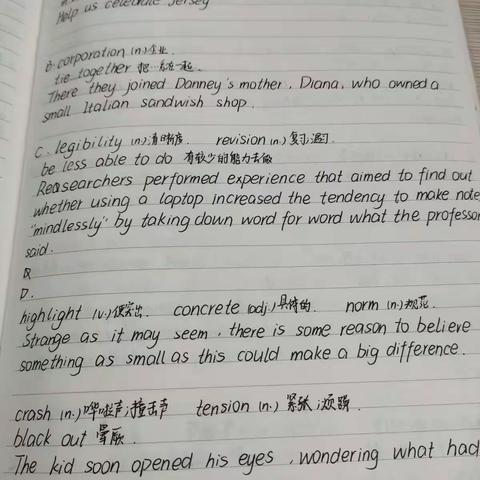 Help us celebrate Jersey
B. corporation (n.)企业.
tie together 把…系在一起.
There they joined Danney's mother, Diana, who owned a
small Italian sandwish shop.
C. legibility (n.)清晰度. revision (n.)复习;温习.
be less able to do 有较少的能力去做
Reasearchers performed experience that aimed to find out
whether using a laptop increased the tendency to make note
"mindlessly" by taking down word for word what the professor
said.
D.
highlight (v.)使突出. concrete (adj.)具体的. norm (n.)规范.
Strange as it may seem, there is some reason to believe
something as small as this could make a big difference.
crash (n.)哗啦声;撞击声 tension (n.)紧张;烦躁.
black out 晕厥.
The kid soon opened his eyes, wondering what had